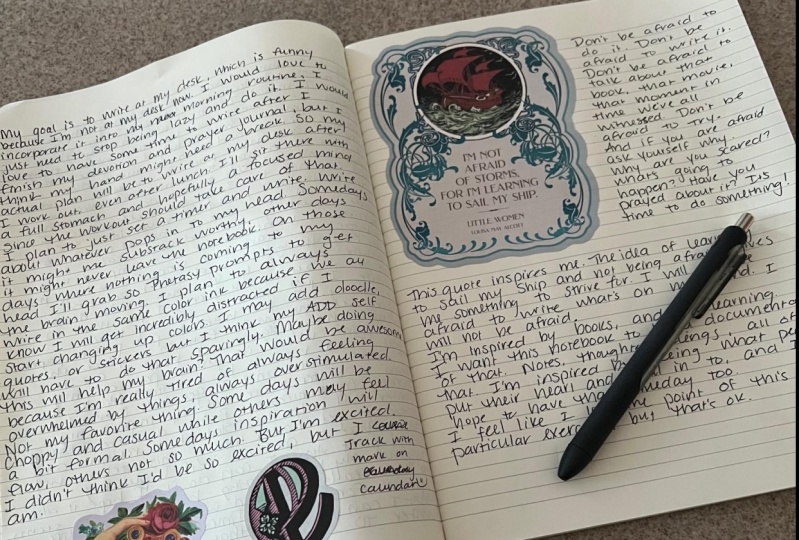 My goal is to write at my desk, which is funny
because I'm not at my desk now. I would love to
incorporate it into my morning routine, I
just need to stop being lazy and do it. I would
love to have some time to write after I
finish my devotion and prayer journal, but I
think my hand might need a break. So my
actual plan will be to write at my desk after
I work out, even after lunch. I'll sit there with
a full stomach and hopefully a focused mind
since the workout should take care of that.
I plan to just set a timer and write. Write
about whatever pops in to my head. Somedays
it might be substack worthy, other days
it might never leave the notebook. On those
days where nothing is coming to my
head I'll grab some prompts to get
the brain moving. I plan to always
write in the same color ink because we all
know I will get incredibly distracted if I
start changing up colors. I may add doodle,
quotes, or stickers but I think my ADD self
will have to do that sparingly. Maybe doing
this will help my brain? That would be awesome
because I'm really tired of always feeling
overwhelmed by things, always overstimulated.
Not my favorite thing. Some days will be
choppy and casual while others may feel
a bit formal. Somedays inspiration will
flow, others not so much. But I'm excited.
I didn't think I'd be so excited, but I
am.
Track with
mark on
calendar
I'M NOT
AFRAID
OF STORMS,
FOR I'M LEARNING
TO SAIL MY SHIP.
LITTLE WOMEN
LOUISA MAY ALCOTT
Don't be afraid to
do it. Don't be
afraid to write it.
Don't be afraid to
talk about that
book, that movie,
that moment in
time we've all
witnessed. Don't be
afraid to try.
And if you are afraid
ask yourself why.
Why are you scared?
What's going to
happen? Have you
prayed about it? It's
time to do something!
This quote inspires me. The idea of
to sail my ship and not being
me something to strive for. I will
afraid to write what's on my I
will not be afraid.
I'm inspired by books, and learning.
I want this notebook to
of that. Notes, all of
that I'm inspired by what
put their heart and in to, and I
hope to have that someday too
I feel like I the point of this
particular but that's ok.